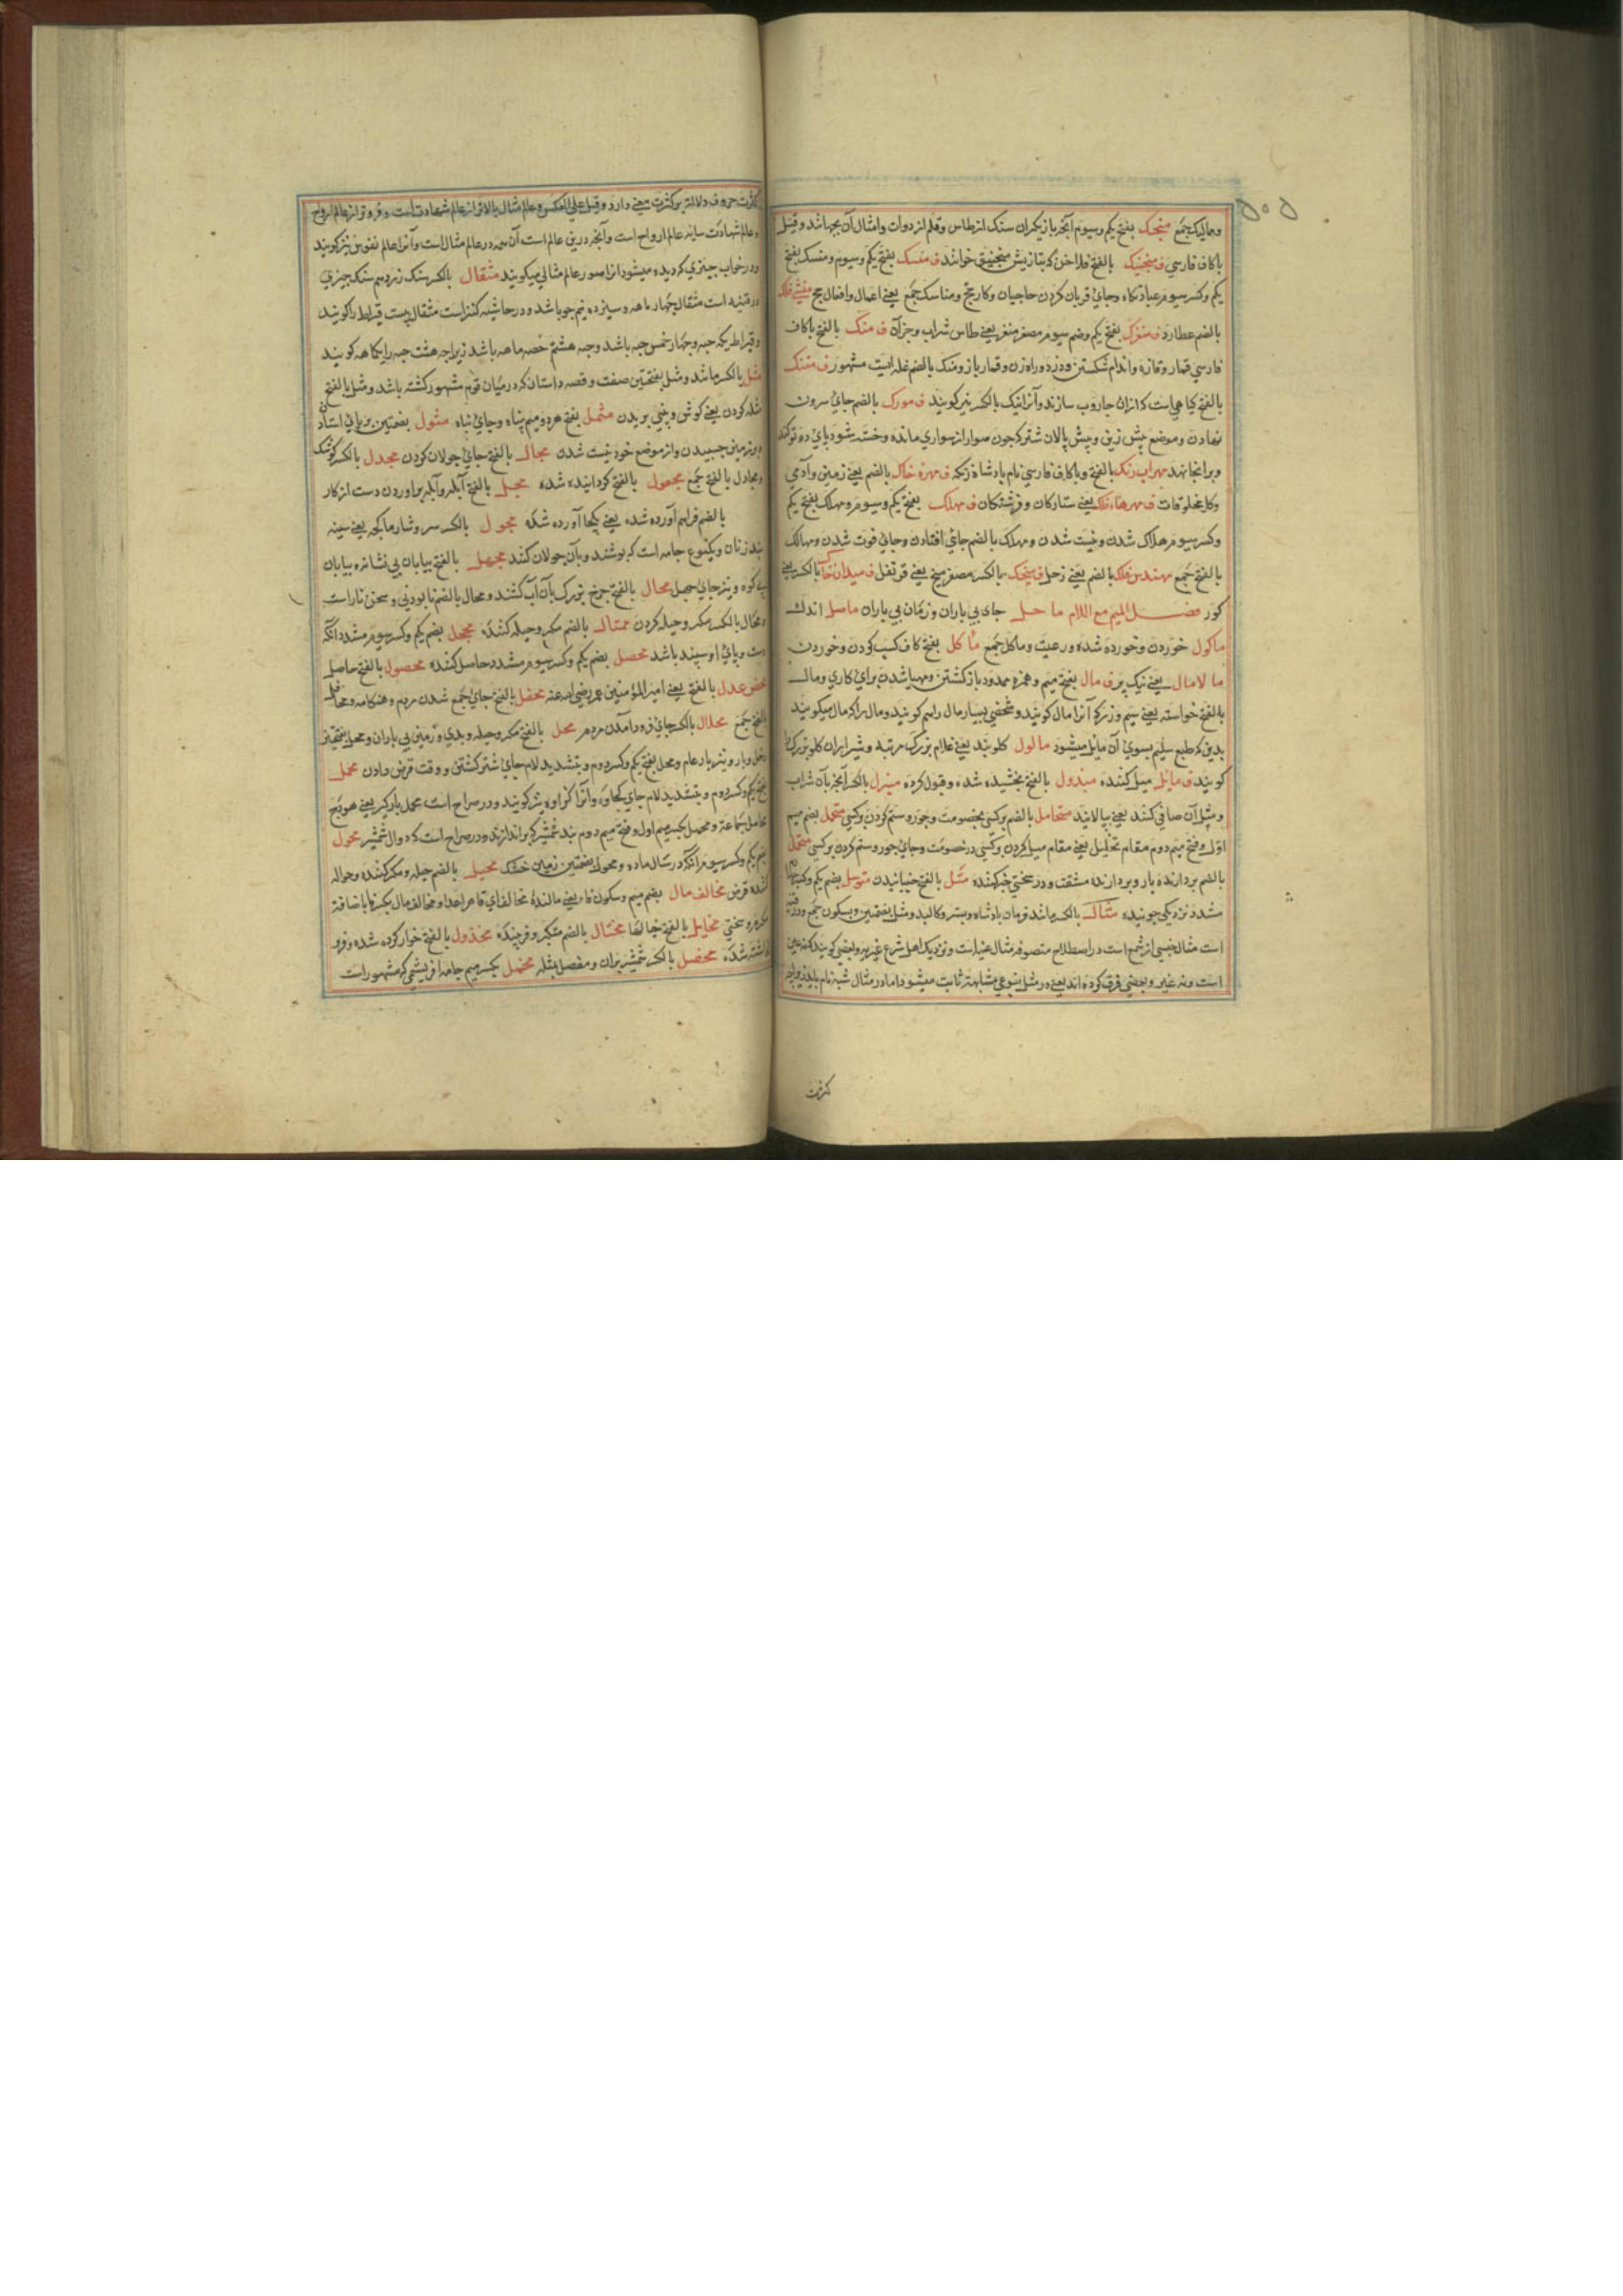 ۵۰۵
وممالیک جمع منجک بفتح یکم وسیوم آنچه بازیکران سنک از طاس وقلم از دوات وامثال آن بجهانند وقیل
باکاف فارسی ف منجنیک بالفتح فلاخن که بتازیش منجنیق خوانند ف منسک بفتح یکم وسیوم ومنسک بفتح
یکم وکسر سیوم عبادتکاه وجای قربان کردن حاجیان وکار حج ومناسک جمع یعنی اعمال وافعال حج منشی فلک
بالضم عطارد ف منغرک بفتح یکم وضم سیوم مصغر منغر یعنی طاس شراب وجز آن ف منک بالفتح باکاف
فارسی قمار وقازه واندام شکستن ودزد وراه زن وقمار باز ومنک بالضم غله ایست مشهور ف منتک
بالفتح کیاهی است که ازان جاروب سازند وآنرا نیک بالکسر نیز کویند ف مورک بالضم جای سرون
نهادن وموضع پیش زین وپیش پالان شتر که چون سوار از سواری مانده وخسته شود پای دوتو کند
وبرانجا نهد مهراب زنک بالفتح وباکاف فارسی نام پادشاه زنکه ف مهره خاک بالضم یعنی زمین وآدمی
وکل مخلوقات ف مهرهاء فلک یعنی ستارکان وفرشتکان ف مهلک بفتح یکم وسیوم ومهلک بفتح یکم
وکسر سیوم هلاک شدن ونیست شدن ومهلک بالضم جای افتادن وجای فوت شدن ومهالک
بالفتح جمع مهندس فلک بالضم یعنی زحل ف میخک بالکسر مصغر میخ یعنی قرنفل ف میدان خاک بالکسر یعنی
کور فصل المیم مع اللام ماحل جای بی باران وزمان بی باران ماصل اندک
ماکول خوردن وخورده شده ورعیت وماکل جمع ماکل بفتح کاف کسب کردن وخوردن
مالامال یعنی نیک پر ف مال بفتح میم وهمزه ممدود بازکشتن ومهیا شدن برای کاری ومال
بالفتح خواسته یعنی سیم وزر که آنرا مال کویند وشخصی بسیار مال را هم کویند ومال را که مال میکویند
بدین که طبع سلیم بسوی آن مایل میشود مالول کلوند یعنی غلام بزرک مرتبه وشیرازان کلو بزرک را
کویند ف مایل میل کننده مبذول بالفتح بخشیده شده وقبول کرده مبزل بالکسر آنچه بآن شراب
ومثل آن صافی کنند یعنی پیالایند متحامل بالضم بر کسی بخصومت وجور وستم کردن بر کسی متحمل بضم میم
اول وفتح میم دوم مقام تحلیل یعنی مقام میل کردن بر کسی در خصومت وجای جور وستم کردن بر کسی متحمل
بالضم بردارنده بار وبردارنده مشقت ودر سختی جهد کننده متل بالفتح جنبانیدن متوسل بضم یکم وکسر چهارم
مشدد نزدیکی جوینده مثال بالکسر مانند فرمان پادشاه وبستر وکالبد ومثل بضمتین وبسکون جمع ودر قنیه
است مثال جنسی از شمع است در اصطلاح متصوفه مثال عین است ونزدیک اهل شرع غیر بود وبعضی کویند که نه عین
است ونه غیر وبعضی فرق کرده اند یعنی در مثل بنوعی مشابهت ثابت میشود اما در مثال شبه تام باید زیراچه
کثرت
کثرت حروف دلالت بر کثرت معنی دارد وقیل علی العکس وعالم مثال بالاتر از عالم شهادت است وفروتر از عالم ارواح
وعالم شهادت سایه عالم ارواح است وآنچه درین عالم است آن همه در عالم مثال است وآنرا عالم نفوس نیز کویند
ودر خواب چیزی که دیده میشود از صور عالم مثالی میکویند مثقال بالکسر سنک زر درم سنک چیزی
در قنیه است مثقال چهار ماهه وسیزده نیم جو باشد ودر حاشیه کنز است مثقال بیست قیراط را کویند
وقیراط یکه حبه وچهار خمس حبه باشد وحبه هشتم حصه ماهه باشد زیراچه هشت حبه را یکماهه کویند
مثل بالکسر مانند ومثل بفتحتین صفت وقصه داستان که در میان قوم مشهور کشته باشد ومثل بالفتح
مثله کردن یعنی کوش وبینی بریدن مثمل بفتح هر دو میم پناه وجای پناه مثول بضمتین بر پای استادن
وبر زمین چسبیدن واز موضع خود نیست شدن مجال بالفتح جای جولان کردن مجدل بالکسر کوشک
ومجادل بالفتح جمع مجعول بالفتح کردانیده شده مجل بالفتح آبله وآبله برآوردن دست از کار
بالضم فراهم آورده شده یعنی یکجا آورده شده مجول بالکسر سر وشار ماکچه یعنی سینه
بند زنان ویکنوع جامه است که پوشند وبآن جولان کنند مجهل بالفتح بیابان بی نشان ره بیابان
بی کوه ونیز جای جهل محال بالفتح چرخ بزرک بآن آب کشند ومحال بالضم نابودنی وسخن ناراست
ومحال بالکسر مکر وحیله کردن محتال بالضم مکر وحیله کننده محجل بضم یکم وکسر سیوم مشدد آنکه
دست وپای او سپید باشد محصل بضم یکم وکسر سیوم مشدد حاصل کننده محصول بالفتح حاصل
محض عدل بالفتح یعنی امیر المؤمنین عمر رضی الله عنه محفل بالفتح جای جمع شدن مردم وهنکامه ومحافل
بالفتح جمع محلال بالکسر جای فرود آمدن مردم محل بالفتح مکر وحیله وبدی وزمین بی باران ومحل بفتحتین
دخل وبار ونیز بار عام ومحل بفتح یکم وکسر دوم وبتشدید لام جای شتر کشتن ووقت قرض دادن محمل
بفتح یکم وکسر دوم وبتشدید لام جای کجاوه وآنرا کزاوه نیز کویند ودر صراح است محمل بارکیر یعنی هودج
محامل جماعة ومحمل بکسر میم اول وفتح میم دوم بند شمشیر که براندازند ودر صراح است که دوال شمشیر محول
بضم یکم وکسر سیوم آنکه در سال ماده ومحول بضمتین زمین خشک محیل بالضم حیله ومکر کننده وحواله
کننده قرض مخالف مال بضم میم وسکون فاء یعنی مالندهٔ مخالفای قاهر اعدا ومخالف مال بکسر فا باضافة
مکر وسختی مخایل بالفتح خیالها مختال بالضم متکبر وفریبنده مخذول بالفتح خوار کرده شده وفرو
کذاشته شده مخصل بالکسر شمشیر بران ومفصل مثله مخمل بکسر میم جامه ابریشمی که مشهور است